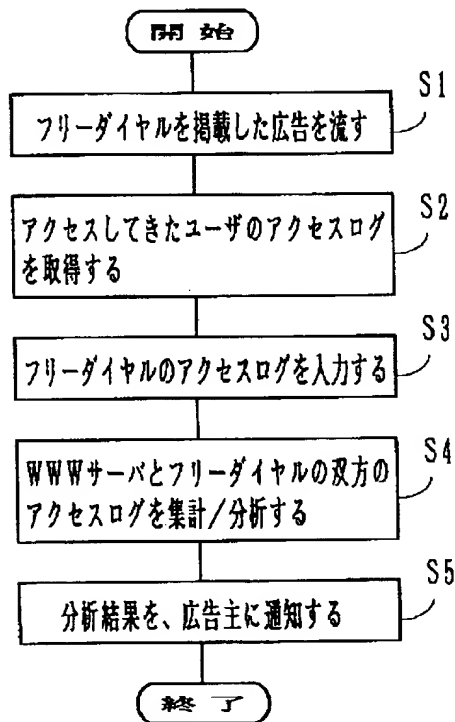 開始
S1
フリーダイヤルを掲載した広告を流す
S2
アクセスしてきたユーザのアクセスログ
を取得する
S3
フリーダイヤルのアクセスログを入力する
S4
WWWサーバとフリーダイヤルの双方の
アクセスログを集計/分析する
S5
分析結果を、広告主に通知する
終了